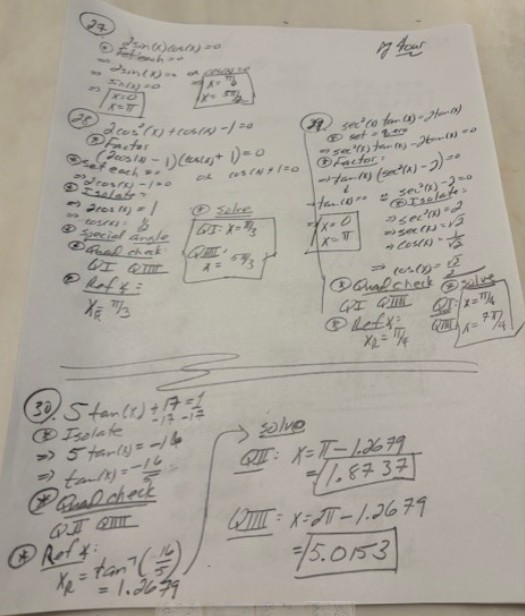 27
2sin(x)cos(x)=0
Set each =0
⇒ 2sin(x)=0 or cos(x)=0
⇒ sin(x)=0
x=0
x=π
28
2cos²(x)+cos(x)-1=0
Factor
(2cos(x)-1)(cos(x)+1)=0
set each =0
⇒ 2cos(x)-1=0 or cos(x)+1=0
Isolate:
⇒ 2cos(x)=1
⇒ cos(x)=½
special angle
Quad check
QI QIIII
Ref ∡:
x_R = π/3
solve
QI: x=π/3
QIIII:
x= 5π/3
29. sec²(x)tan(x)=2tan(x)
set = zero
⇒ sec²(x)tan(x)-2tan(x)=0
Factor:
⇒ tan(x)(sec²(x)-2)=0
⇒ tan(x)=0 sec²(x)-2=0
⇒ x=0
x=π
Isolate:
⇒ sec²(x)=2
⇒ sec(x)=√2
⇒ cos(x)=1/√2
⇒ cos(x)=√2/2
Quad check
QI QIIII
Ref ∡:
x_R = π/4
solve
QI: x=π/4
QIIII: x=7π/4
30. 5tan(x)+17=1
-17 -17
Isolate
⇒ 5tan(x)=-16
⇒ tan(x)=-16/5
Quad check
QII QIIII
Ref ∡:
x_R = tan⁻¹(16/5)
= 1.2679
solve
QII: x=π-1.2679
=1.8737
QIIII: x=2π-1.2679
=5.0153